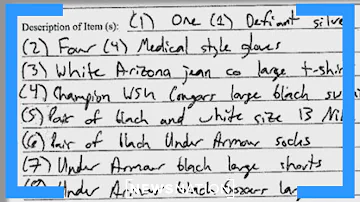 Description of Item (s): (1) One (1) Defiant silve
(2) Four (4) Medical style gloves
(3) White Arizona jean co large t-shir
(4) Champion WSU Cougars large black sw
(5) Pair of black and white size 13 Ni
(6) Pair of black Under Armour socks
(7) Under Armour black large shorts
(8) Under Armour black boxers larg